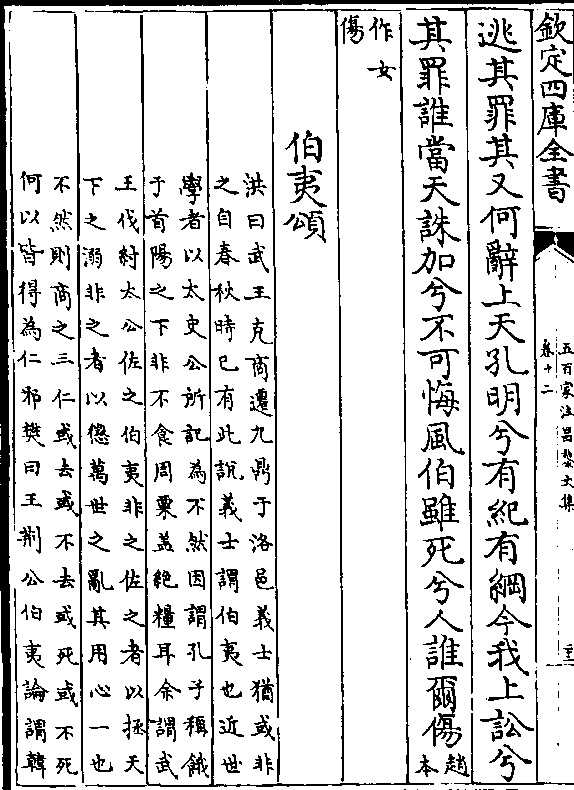 欽定四庫全書
五百家注昌黎文集
卷十二
逃其罪其又何辭上天孔明兮有紀有綱今我上訟兮
其罪誰當天誅加兮不可悔風伯雖死兮人誰爾傷趙本
作女
傷
伯夷頌
洪曰武王克商遷九鼎于洛邑義士猶或非
之自春秋時已有此說義士謂伯夷也近世
學者以太史公所記為不然因謂孔子稱餓
于首陽之下非不食周粟盖絶糧耳余謂武
王伐紂太公佐之伯夷非之佐之者以拯天
下之溺非之者以懲萬世之亂其用心一也
不然則商之三仁或去或不去或死或不死
何以皆得為仁邪樊曰王荆公伯夷論謂韓